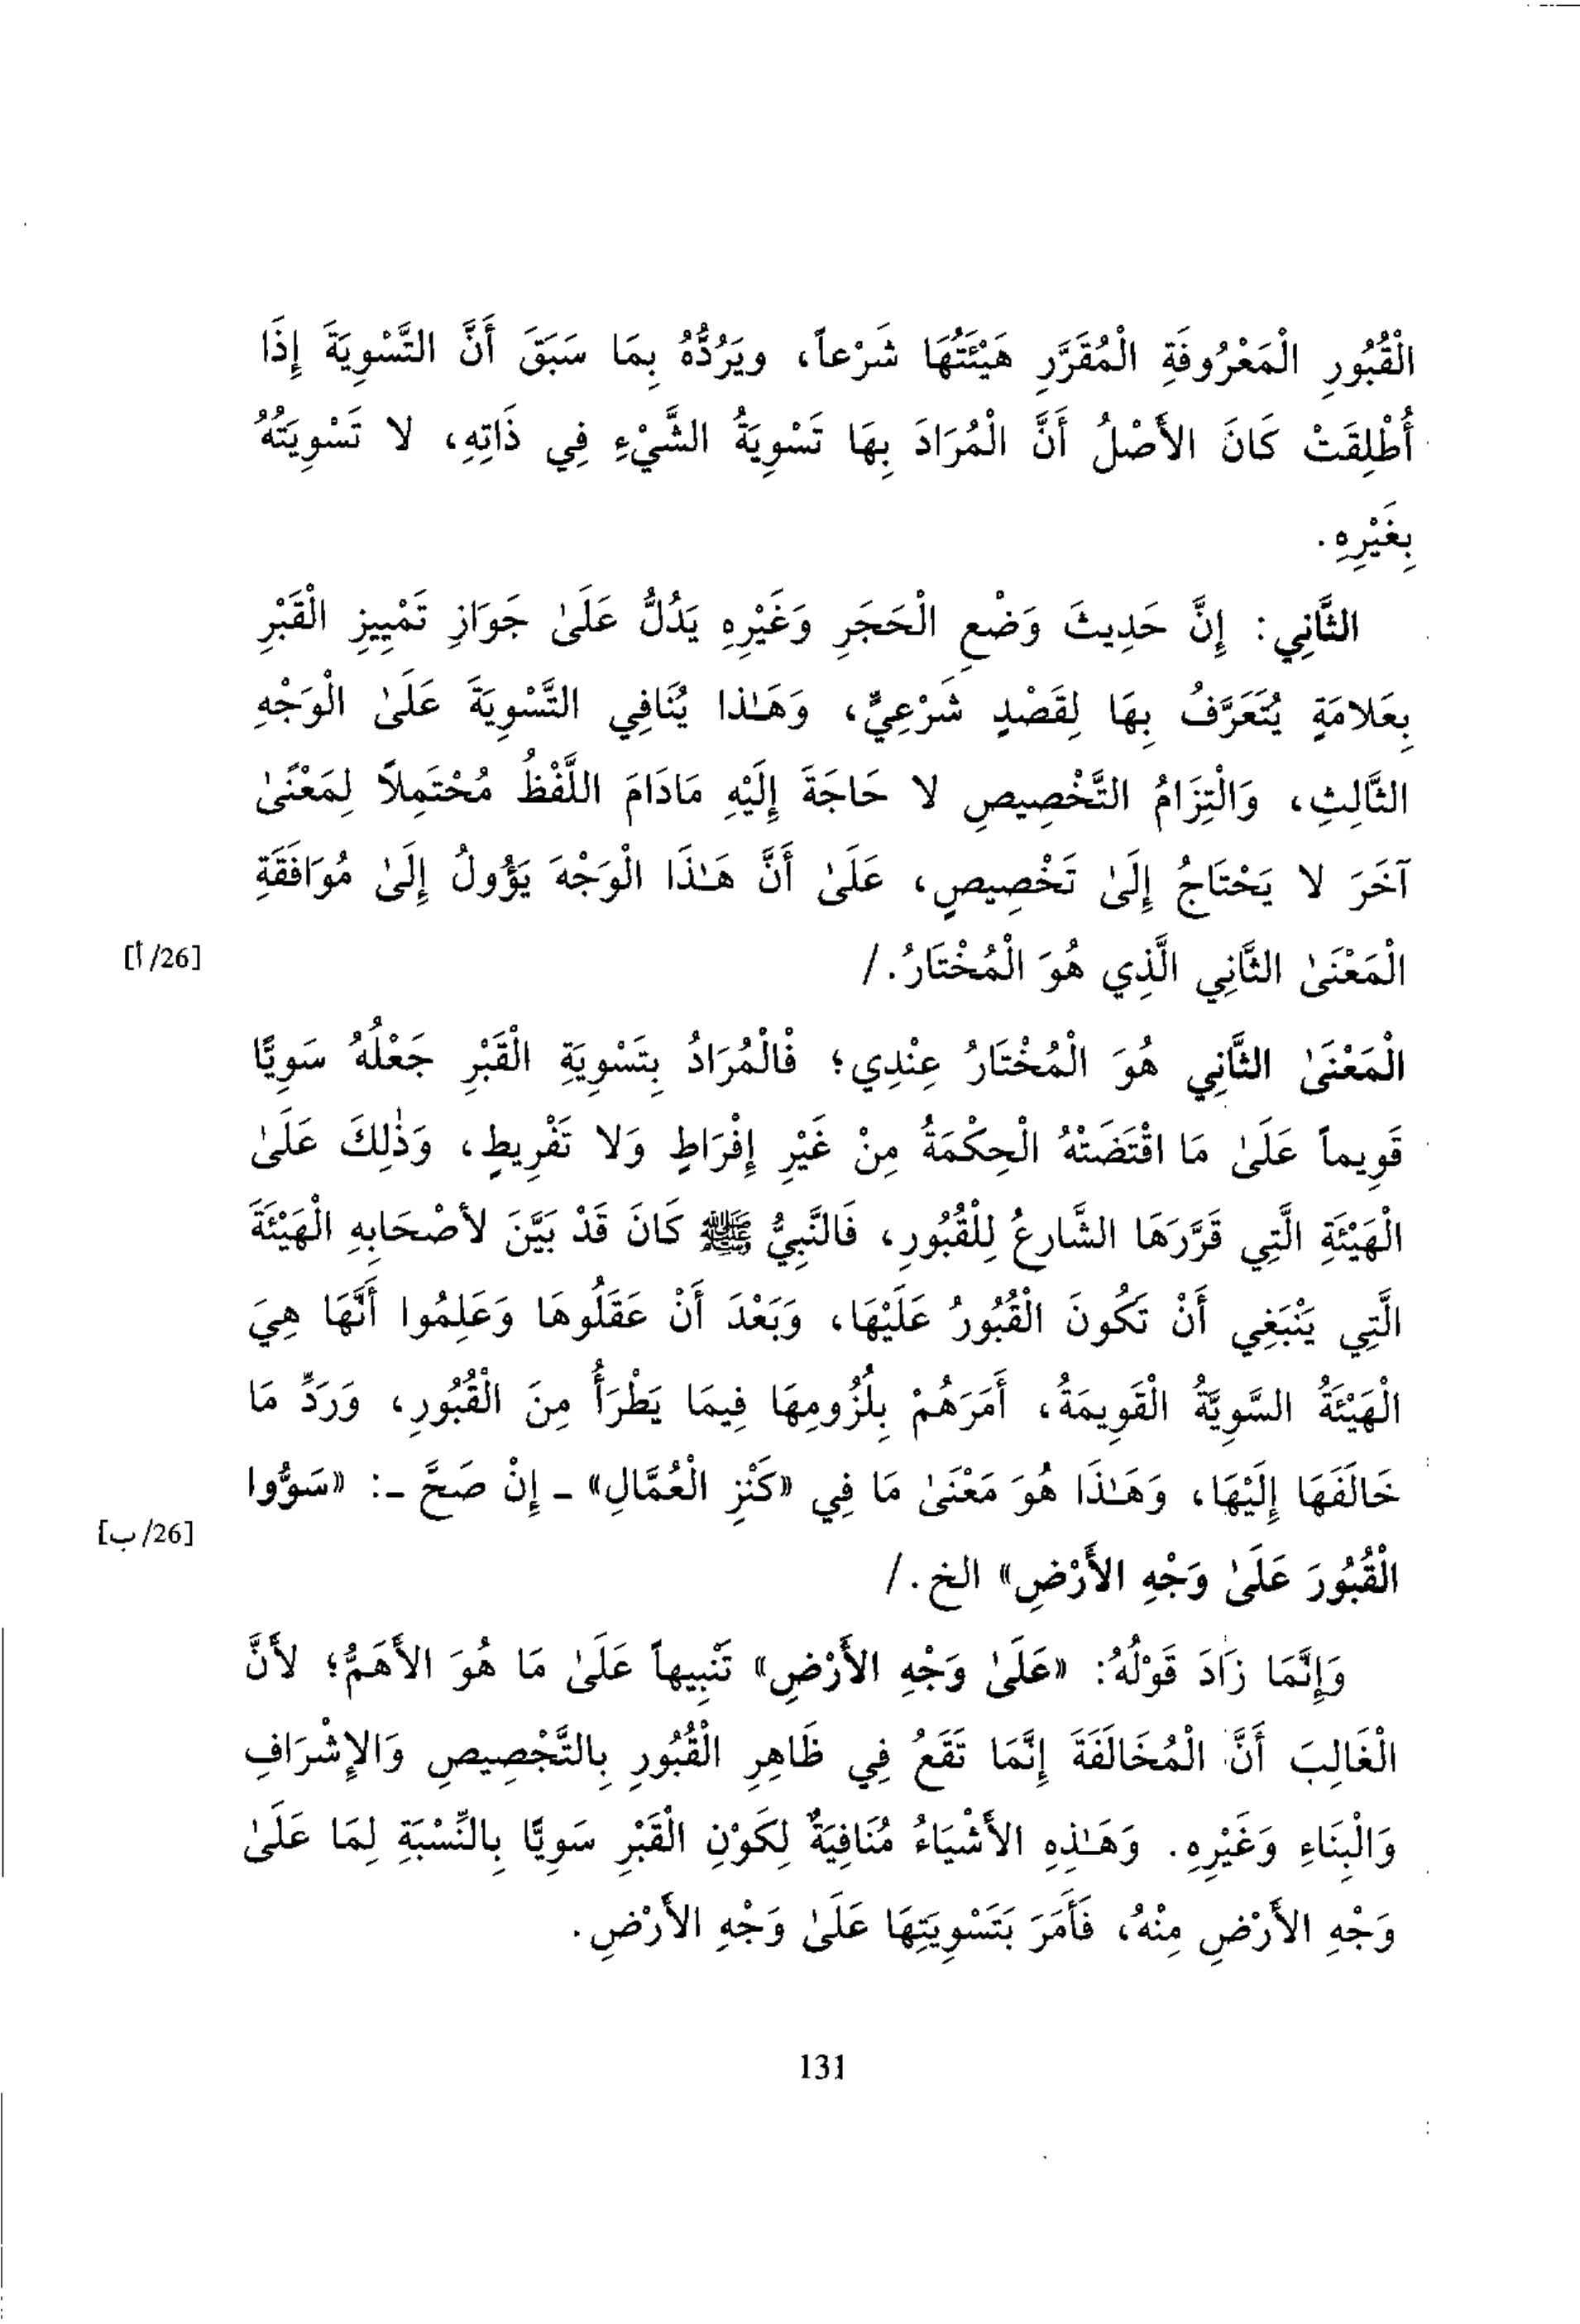 الْقُبُورِ الْمَعْرُوفَةِ الْمُقَرَّرِ هَيْئَتُهَا شَرْعاً، ويَرُدُّهُ بِمَا سَبَقَ أَنَّ التَّسْوِيَةَ إِذَا
أُطْلِقَتْ كَانَ الأَصْلُ أَنَّ الْمُرَادَ بِهَا تَسْوِيَةُ الشَّيْءِ فِي ذَاتِهِ، لا تَسْوِيَتُهُ
بِغَيْرِهِ.
الثَّانِي: إِنَّ حَدِيثَ وَضْعِ الْحَجَرِ وَغَيْرِهِ يَدُلُّ عَلَىٰ جَوَازِ تَمْيِيزِ الْقَبْرِ
بِعَلامَةٍ يُتَعَرَّفُ بِهَا لِقَصْدٍ شَرْعِيٍّ، وَهَـٰذا يُنَافِي التَّسْوِيَةَ عَلَىٰ الْوَجْهِ
الثَّالِثِ، وَالْتِزَامُ التَّخْصِيصِ لا حَاجَةَ إِلَيْهِ مَادَامَ اللَّفْظُ مُحْتَمِلاً لِمَعْنًىٰ
آخَرَ لا يَحْتَاجُ إِلَىٰ تَخْصِيصٍ، عَلَىٰ أَنَّ هَـٰذَا الْوَجْهَ يَؤُولُ إِلَىٰ مُوَافَقَةِ
الْمَعْنَىٰ الثَّانِي الَّذِي هُوَ الْمُخْتَارُ./
[26/أ]
الْمَعْنَىٰ الثَّانِي هُوَ الْمُخْتَارُ عِنْدِي؛ فَالْمُرَادُ بِتَسْوِيَةِ الْقَبْرِ جَعْلُهُ سَوِيًّا
قَوِيماً عَلَىٰ مَا اقْتَضَتْهُ الْحِكْمَةُ مِنْ غَيْرِ إِفْرَاطٍ وَلا تَفْرِيطٍ، وَذٰلِكَ عَلَىٰ
الْهَيْئَةِ الَّتِي قَرَّرَهَا الشَّارِعُ لِلْقُبُورِ، فَالنَّبِيُّ ﷺ كَانَ قَدْ بَيَّنَ لأَصْحَابِهِ الْهَيْئَةَ
الَّتِي يَنْبَغِي أَنْ تَكُونَ الْقُبُورُ عَلَيْهَا، وَبَعْدَ أَنْ عَقَلُوهَا وَعَلِمُوا أَنَّهَا هِيَ
الْهَيْئَةُ السَّوِيَّةُ الْقَوِيمَةُ، أَمَرَهُمْ بِلُزُومِهَا فِيمَا يَطْرَأُ مِنَ الْقُبُورِ، وَرَدِّ مَا
خَالَفَهَا إِلَيْهَا، وَهَـٰذَا هُوَ مَعْنَىٰ مَا فِي «كَنْزِ الْعُمَّالِ» ـ إِنْ صَحَّ ـ: «سَوُّوا
الْقُبُورَ عَلَىٰ وَجْهِ الأَرْضِ» الخ./
[26/ب]
وَإِنَّمَا زَادَ قَوْلُهُ: «عَلَىٰ وَجْهِ الأَرْضِ» تَنْبِيهاً عَلَىٰ مَا هُوَ الأَهَمُّ؛ لأَنَّ
الْغَالِبَ أَنَّ الْمُخَالَفَةَ إِنَّمَا تَقَعُ فِي ظَاهِرِ الْقُبُورِ بِالتَّجْصِيصِ وَالإِشْرَافِ
وَالْبِنَاءِ وَغَيْرِهِ. وَهَـٰذِهِ الأَشْيَاءُ مُنَافِيَةٌ لِكَوْنِ الْقَبْرِ سَوِيًّا بِالنِّسْبَةِ لِمَا عَلَىٰ
وَجْهِ الأَرْضِ مِنْهُ، فَأَمَرَ بَتَسْوِيَتِهَا عَلَىٰ وَجْهِ الأَرْضِ.
131